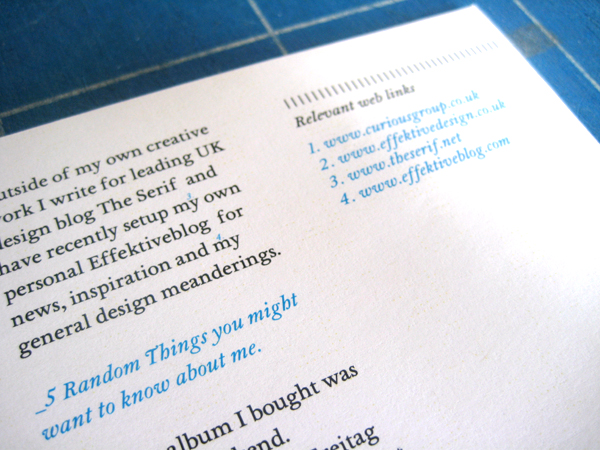 utside of my own creative
ork I write for leading UK
design blog The Serif 3 and
have recently setup my own
personal Effektiveblog 4 for
news, inspiration and my
general design meanderings.
_5 Random Things you might
want to know about me.
album I bought was
band.
Freitag
Relevant web links
1. www.curiousgroup.co.uk
2. www.effektivedesign.co.uk
3. www.theserif.net
4. www.effektiveblog.com